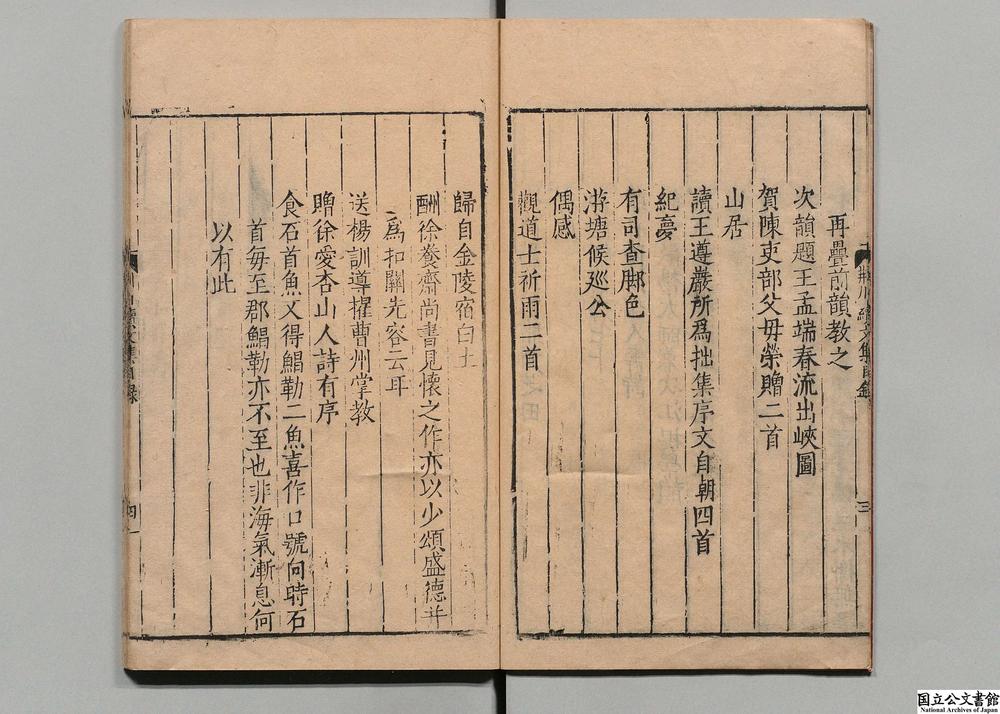 再疊前韻教之
次韻題王孟端春流出峽圖
賀陳吏部父毋榮贈二首
山居
讀王遵巖所爲拙集序文自朝四首
紀夢
有司查脚色
游塘候廵公
偶感
觀道士祈雨二首
歸自金陵宿白土
酬徐養齋尚書見懷之作亦以少頌盛德并
爲扣關先容云耳
送楊訓導擢曹州掌教
贈徐愛杏山人詩有序
食石首魚又得鯧勒二魚喜作口號向時石
首毎至郡鯧勒亦不至也非海氣漸息何
以有此
三
四
国立公文書館
National Archives of Japan